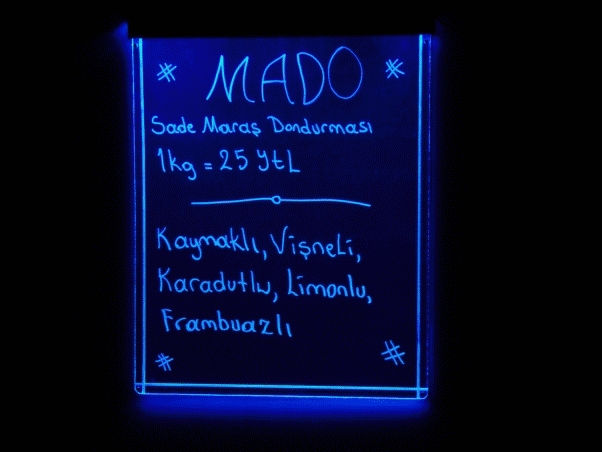 MADO
Sade Maraş Dondurması
1kg = 25 YtL
Kaymaklı, Vişneli,
Karadutlu, Limonlu,
Frambuazlı